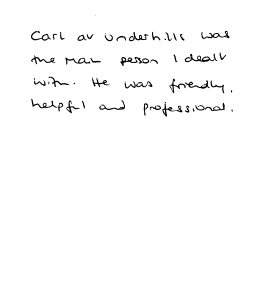 Carl at Underhills was
the main person I dealt
with. He was friendly,
helpful and professional.